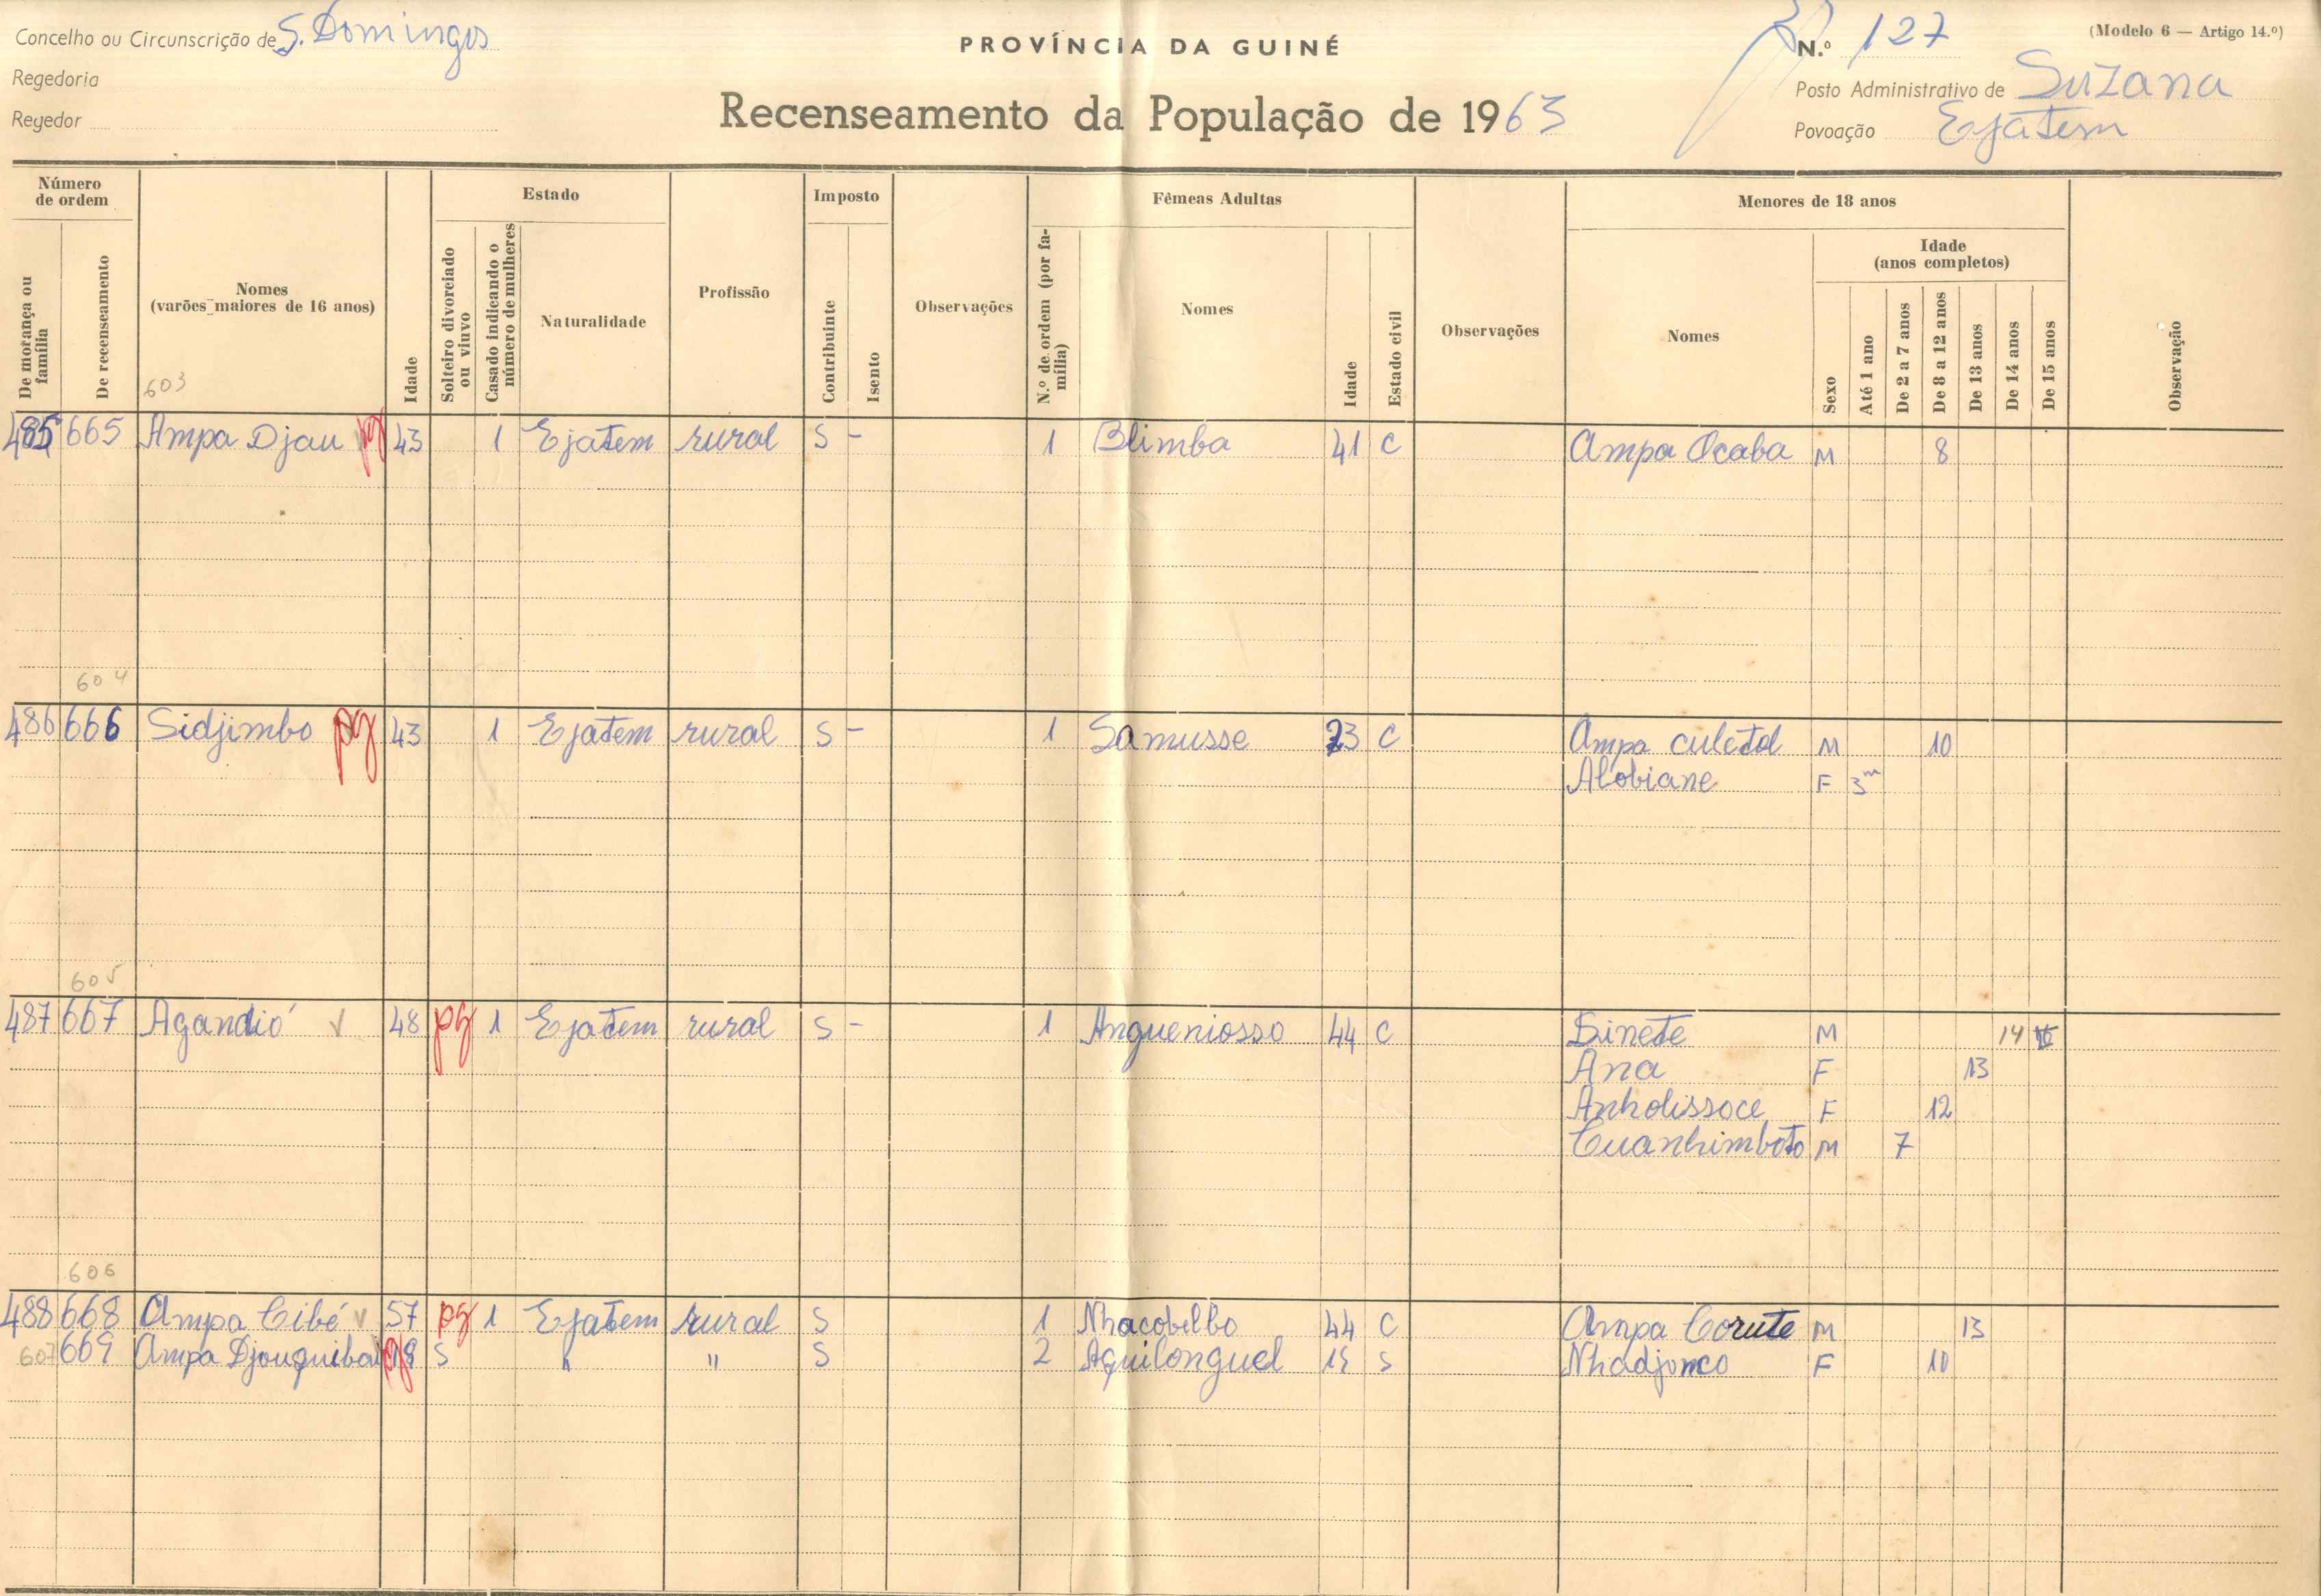 Concelho ou Circunscrição de S. Domingos
PROVÍNCIA DA GUINÉ
N.º 127
(Modelo 6 — Artigo 14.º)
Regedoria
Posto Administrativo de Suzana
Recenseamento da População de 1963
Regedor
Povoação Ejatem
Número de ordem
Estado
Imposto
Fêmeas Adultas
Menores de 18 anos
Idade
(anos completos)
De morança ou família
De recenseamento
Nomes
(varões maiores de 16 anos)
Idade
Solteiro divorciado ou viuvo
Casado indicando o número de mulheres
Naturalidade
Profissão
Contribuinte
Isento
Observações
N.º de ordem (por família)
Nomes
Idade
Estado civil
Observações
Nomes
Sexo
Até 1 ano
De 2 a 7 anos
De 8 a 12 anos
De 13 anos
De 14 anos
De 15 anos
Observação
603
485 665 Ampa Djau pg 43 1 Ejatem rural S - 1 Blimba 41 C Ampa Ocaba M 8
604
486 666 Sidjimbo pg 43 1 Ejatem rural S - 1 Samusse 23 C Ampa culetol M 10
Alobiane F 3m
605
487 667 Agandió V 48 pg 1 Ejatem rural S - 1 Angueniosso 44 C Sinete M 14
Ana F 13
Anholissoce F 12
Cuanhimboto M 7
606
488 668 Ampa Cibé V 57 pg 1 Ejatem rural S 1 Nhacobelbo 44 C Ampa Corute M 13
607 669 Ampa Djouguibai pg S " " S 2 Aquilonguel S Nhadjonco F 10